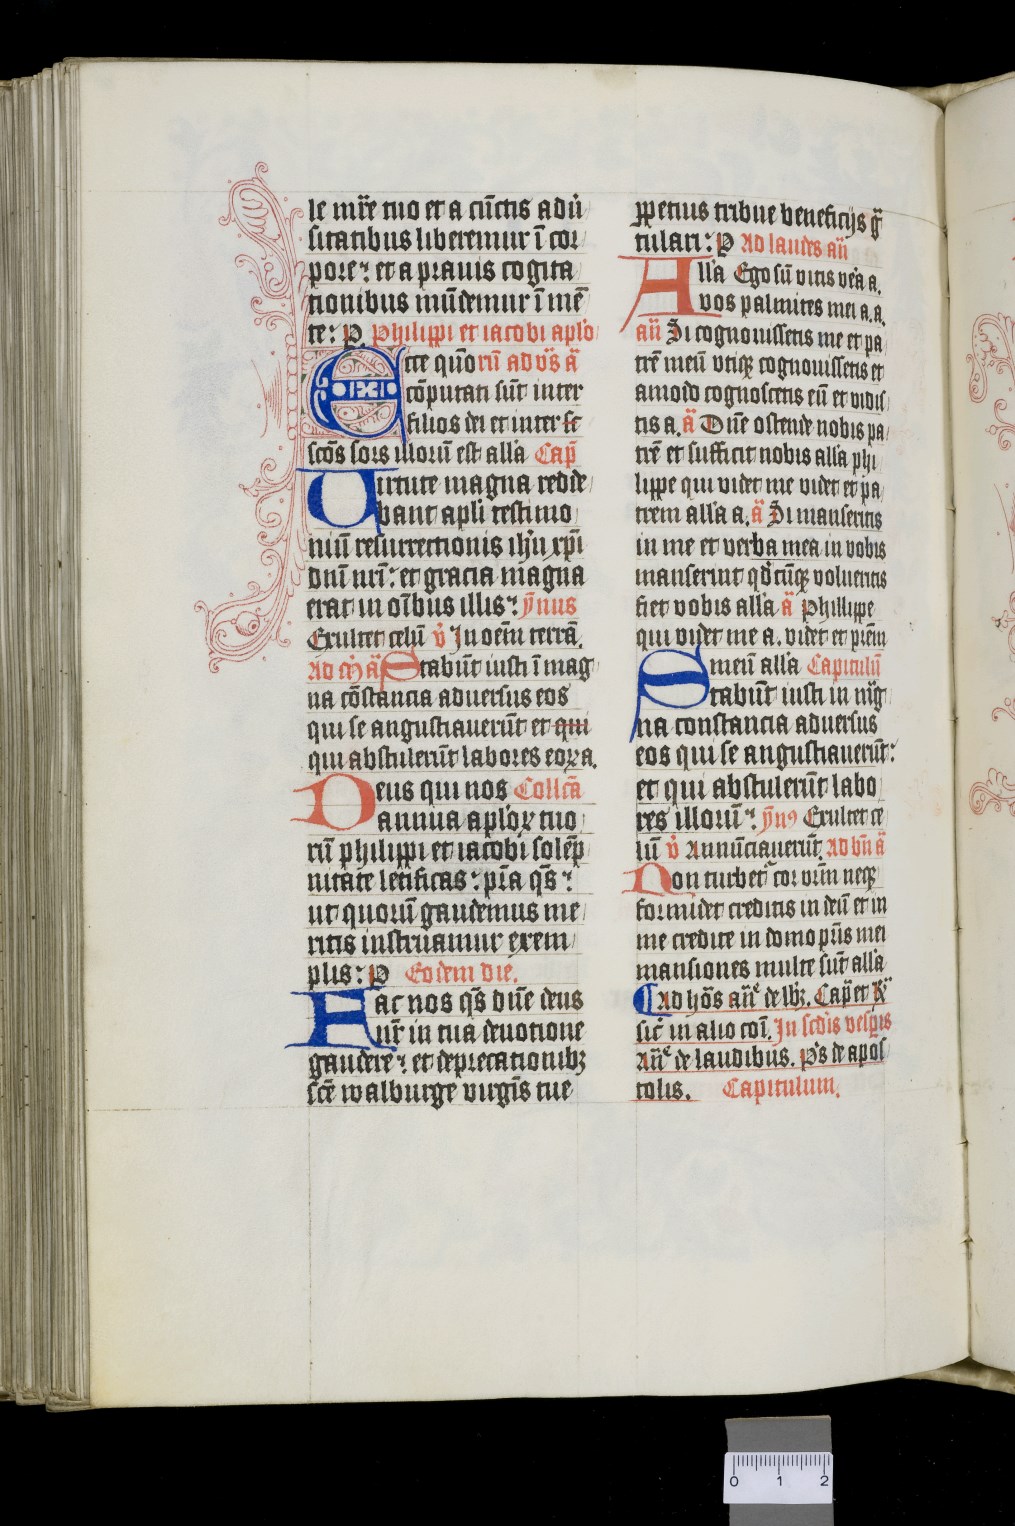 le mr̄e tuo et a cūctis adū
sitatibus liberemur ī cor
pore: et a prauis cogita
tionibus mūdemur ī mē
te: P. Philippi et iacobi aplo
Ecce quōrū ad vs̄ ā
cōputati sūt inter
filios dei et inter sc
scōs sors illorū est alla Cap̄
Virtute magna redde
bant apli testimo
niū resurrectionis ihu xpi
dnī nrī: et gracia magna
erat in oībus illis: ȳnus
Exultet celū v̄ In oēm terrā.
Ad m̄ ā Stabūt iusti ī mag
na cōstancia aduersus eos
qui se angustiauerūt et qui
qui abstulerūt labores eoꝝ a.
Deus qui nos Collcā
annua aploꝝ tuo
rū philippi et iacobi solēp
nitate letificas: pr̄a qs̄:
ut quorū gaudemus me
ritis instruamur exem
plis: P Eodem die.
Fac nos qs̄ dn̄e deus
nr̄ in tua deuotione
gaudere: et deprecationibꝫ
scē walburge virgīs tue
ꝑpetuis tribue beneficijs ḡ
tulari: P Ad laudes an̄
Alla Ego sū vitis vēa a.
vos palmites mei a. a.
an̄ Si cognouissetis me et pa
trē meū vtiqꝫ cognouissetis et
amodo cognoscens eū et vidis
tis a. ā Dn̄e ostende nobis pa
trē et sufficit nobis alla phi
lippe qui videt me videt et pa
trem alla a. ā Si manseritis
in me et verba mea in vobis
manserint qd̄cūqꝫ volueritis
fiet vobis alla ā Phillippe
qui videt me a. videt et prēm
meū alla Capitulū
Stabūt iusti in mḡ
na constancia aduersus
eos qui se angustiauerūt:
et qui abstulerūt labo
res illorū: ȳnꝰ Exultet ce
lū v̄ Annūciauerūt. Ad bn̄ ā
Non turbet᷑ cor vrm̄ neqꝫ
formidet creditis in deū et in
me credite in domo pr̄is mei
mansiones multe sūt alla
Ad hōs an̄e de lbꝫ. Cap̄ et ꝶ
sic̄ in alio coī. In scdīs vesp̄is
An̄e de laudibus. Ps̄ de apos
tolis. Capitulum.
0 1 2